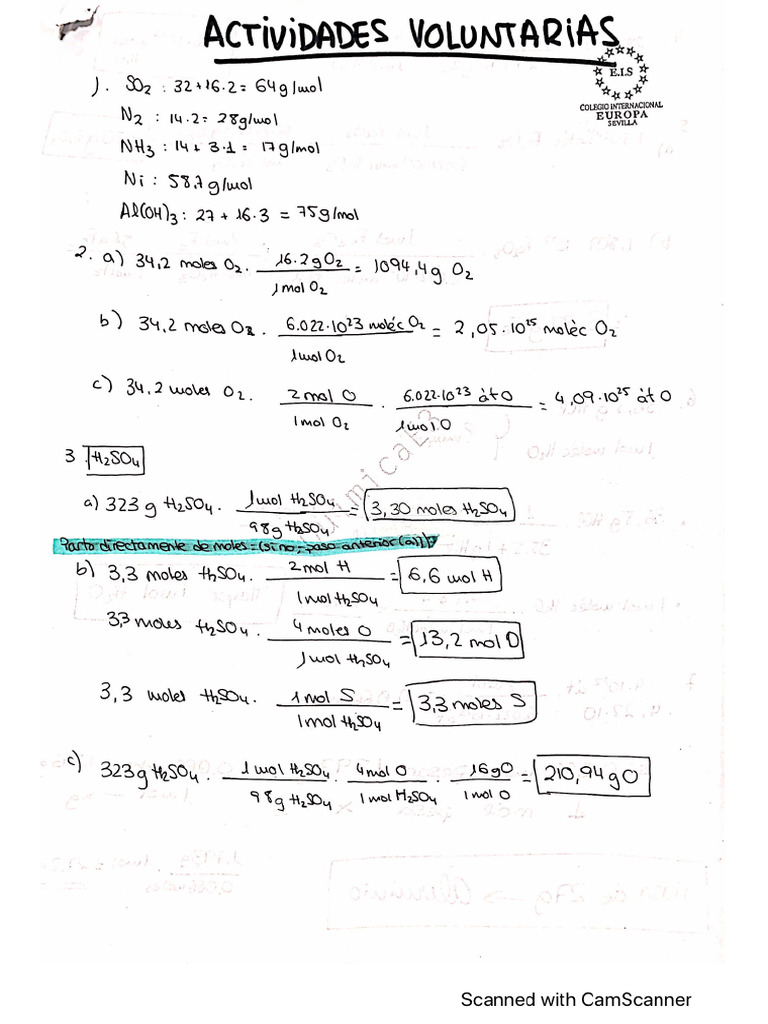 ACTIVIDADES VOLUNTARIAS
E.I.S
COLEGIO INTERNACIONAL
EUROPA
SEVILLA
1. SO2 : 32+16·2 = 64g/mol
N2 : 14·2 = 28g/mol
NH3 : 14 + 3·1 = 17g/mol
Ni : 58,7 g/mol
Al(OH)3 : 27 + 16·3 = 75g/mol
2. a) 34,2 moles O2 · 16·2 g O2 / 1 mol O2 = 1094,4 g O2
b) 34,2 moles O2 · 6.022·10^23 moléc O2 / 1 mol O2 = 2,05·10^25 moléc O2
c) 34,2 moles O2 · 2 mol O / 1 mol O2 · 6.022·10^23 àt O / 1 mol O = 4,09·10^25 àt O
3. H2SO4
a) 323 g H2SO4 · 1 mol H2SO4 / 98g H2SO4 = 3,30 moles H2SO4
Parto directamente de moles = (si no, = paso anterior (a))
b) 3,3 moles H2SO4 · 2 mol H / 1 mol H2SO4 = 6,6 mol H
3,3 moles H2SO4 · 4 moles O / 1 mol H2SO4 = 13,2 mol O
3,3 moles H2SO4 · 1 mol S / 1 mol H2SO4 = 3,3 moles S
c) 323 g H2SO4 · 1 mol H2SO4 / 98g H2SO4 · 4 mol O / 1 mol H2SO4 · 16 g O / 1 mol O = 210,94 g O
Scanned with CamScanner